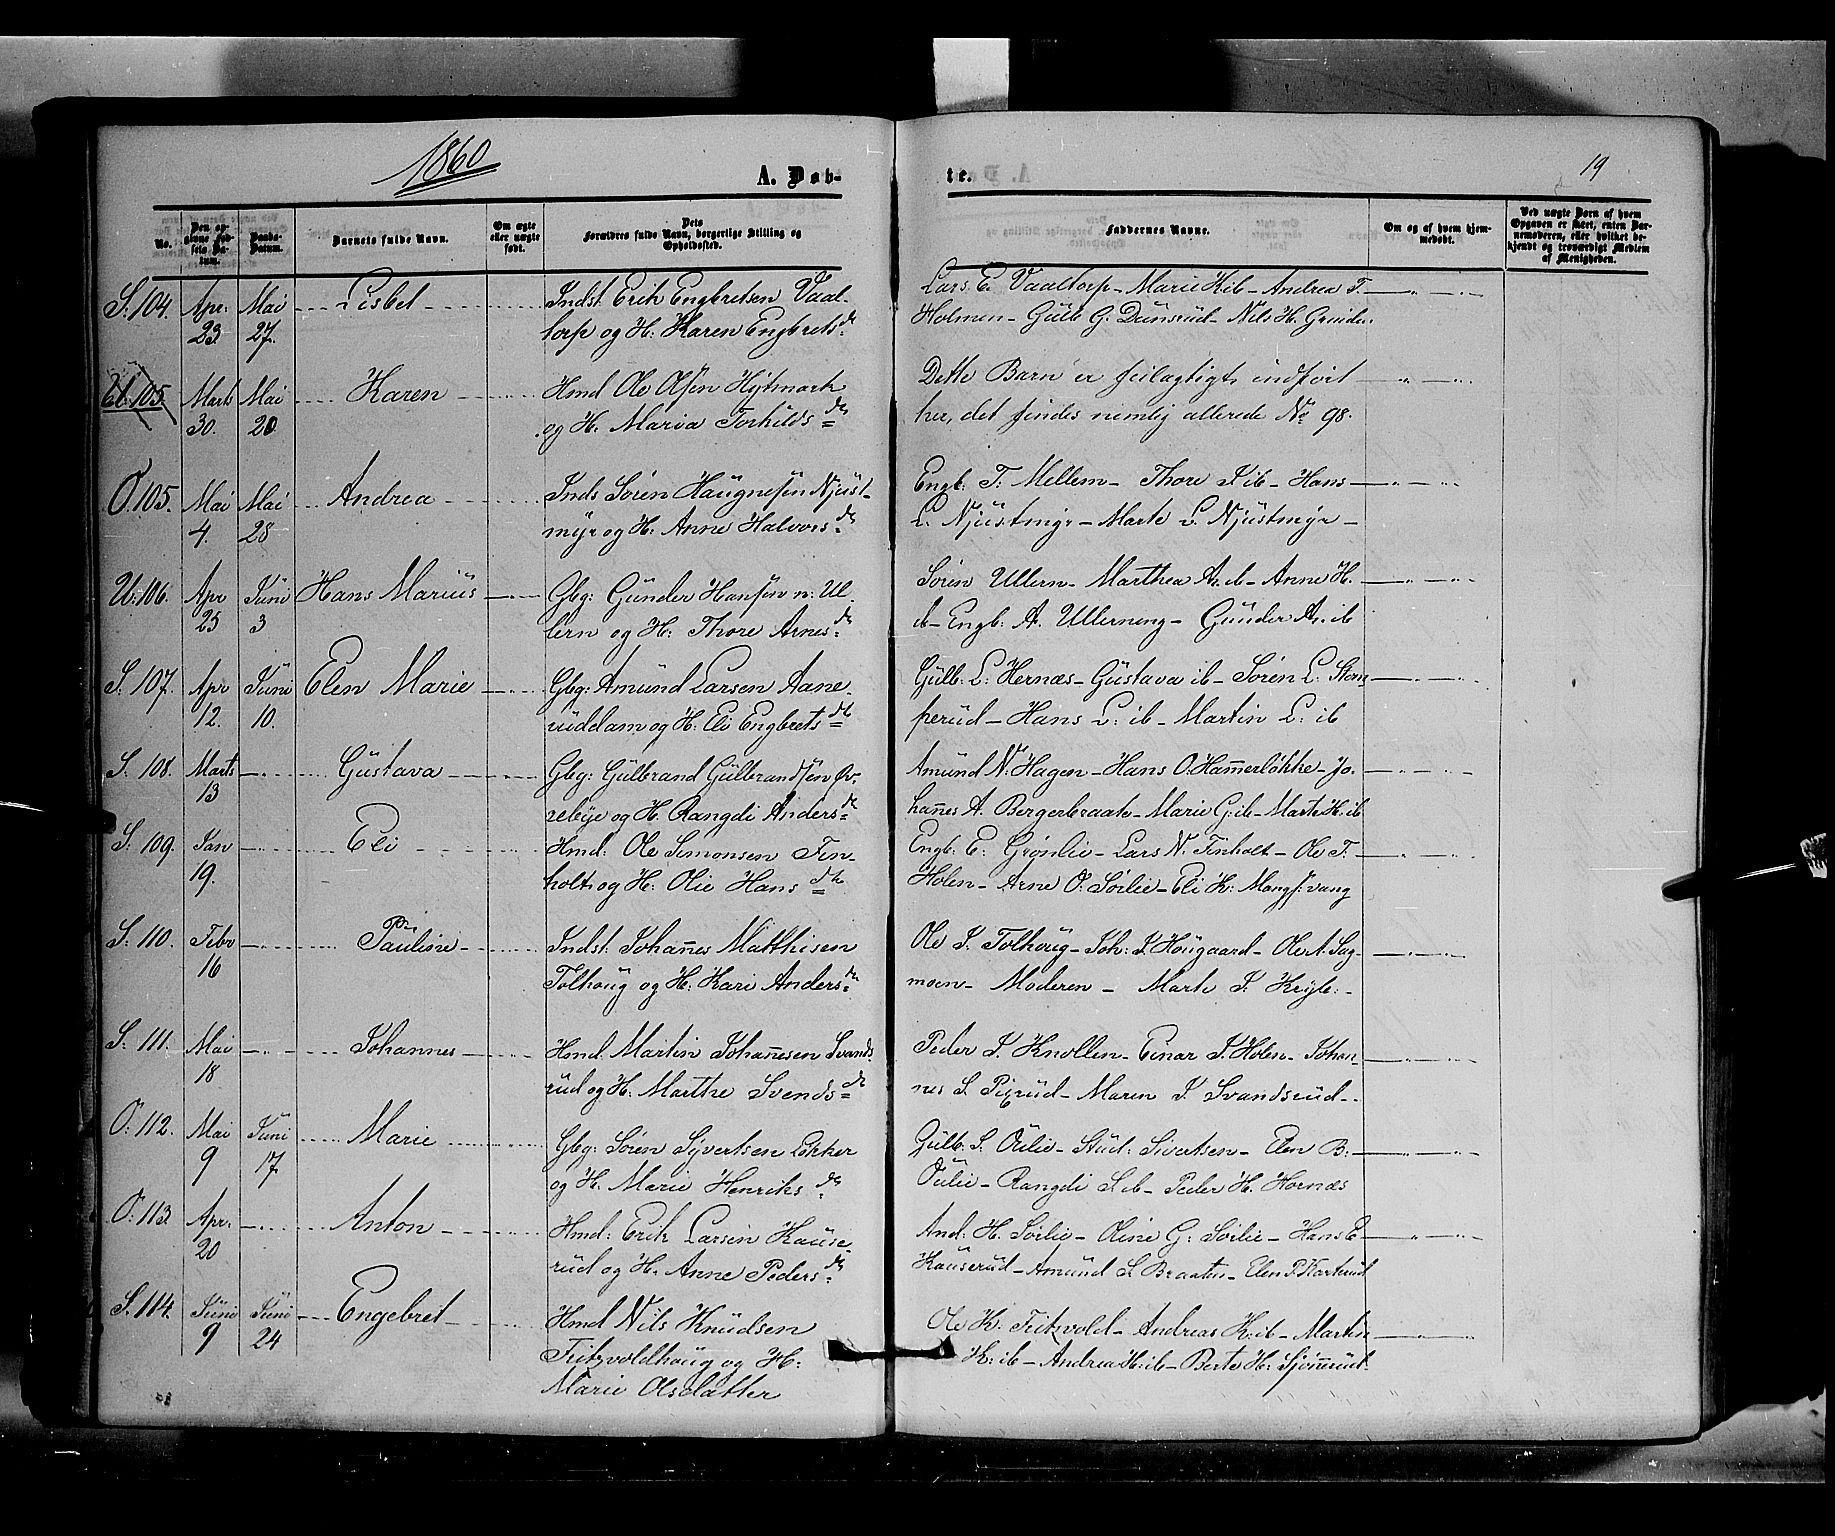 1860
A. Døb-
te.
19
No.
Den op-
givne Fød-
sels Da-
tum.
Daabs-
Datum.
Barnets fulde Navn.
Om ægte
eller uægte
født.
Dets
Forældres fulde Navn, borgerlige Stilling og
Opholdssted.
Faddernes Navne.
Om og af hvem hjem-
medøbt.
Ved uægte Børn af hvem
Opgaven er skeet, enten Bar-
nemoderen, eller hvilket be-
kjendt og troværdigt Medlem
af Menigheden.
S. 104. Apr: 23 Mai 27. Lisbet Indst. Erik Engbretsen Vaal-
torp og H: Karen Engbrets dr
Lars E Vaaltorp - Marie K ib - Andrea T.
Holmen - Gulb G. Dunsrud - Nils H. Grinder
Ul. 105 Marts 30. Mai 20. Karen Hmd Ole Olsen Hytmark
og H. Maria Torkilds dr
Dette Barn er feilagtigt indført
her, det findes nemlig allerede No 98.
O. 105. Mai 4. Mai 28 Andrea Inds Sören Haugnesen Njust-
myr og H: Anne Halvors dr
Engb: T. Mellem - Thore ib - Hans
L. Njustmyr - Marte L. Njustmyr -
U. 106. Apr 25 Juni 3 Hans Marius Gbg: Gunder Hansen n: Ul-
lern og H: Thore Arnes dr
Sören Ullern - Marthea A. ib - Anne H.
ib - Engb: A. Ullerneng - Gunder A. ib
S. 107. Apr 12. Juni 10. Elen Marie Gbg: Amund Larsen Aane-
ruddam og H: Eli Engbrets dr
Gulb: L: Hernæs - Gustava ib - Sören L: Stom-
perud - Hans L: ib - Martin L: ib
S. 108. Marts 13 Gustava Gbg: Gulbrand Gulbrandsen Ov-
rebye og H. Rangdi Anders dr
Amund N. Hagen - Hans O. Hammerløkke - Jo-
hannes A. Bergerbraate - Marie G: ib - Marte H. ib
S. 109. Jan 19. Eli Hmd: Ole Simonsen Fin-
holt og H: Olie Hans dr
Engb: E: Grønlie - Lars N. Finholt - Ole T.
Holen - Arne O. Sörlie - Eli K: vang
S. 110. Febr 16 Pauline Indst: Johannes Matthisen
Tolhoug og H: Kari Anders dr
Ole J. Tolhoug - Joh: J. Hougaard - Ole A. Sag-
moen - Moderen - Marte J. -
S. 111. Mai 18 Johannes Hmd. Martin Johannesen Svands-
rud og H: Marthe Svends dr
Peder J. Knollen - Einar J. Holen - Johan-
nes S. Pixrud - Maren J. Svandsrud -
O: 112. Mai 9 Juni 17 Marie Gbg: Sören Syvertsen Ekker
og H. Marie Henriks dr
Gulb: S. Oulie - Stud: Sivertsen - Elen B:
Oulie - Rangdi S. ib - Peder H. Hornæs
O: 113 Apr: 20 Anton Hmd: Erik Larsen Kause-
rud og H. Anne Peders dr
And: H. Sörlie - Oline G: Sörlie - Hans E
Kauserud - Amund S. Braaten - Elen P.
S. 114. Juni 9 Juni 24 Engebret Hmd Nils Knudsen
Fritzvoldhoug og H:
Marie Olsdatter
Ole K: Fritzvold - Andreas K: ib - Martin
K: ib - Andrea H: ib - Berte H: Sjönnerud